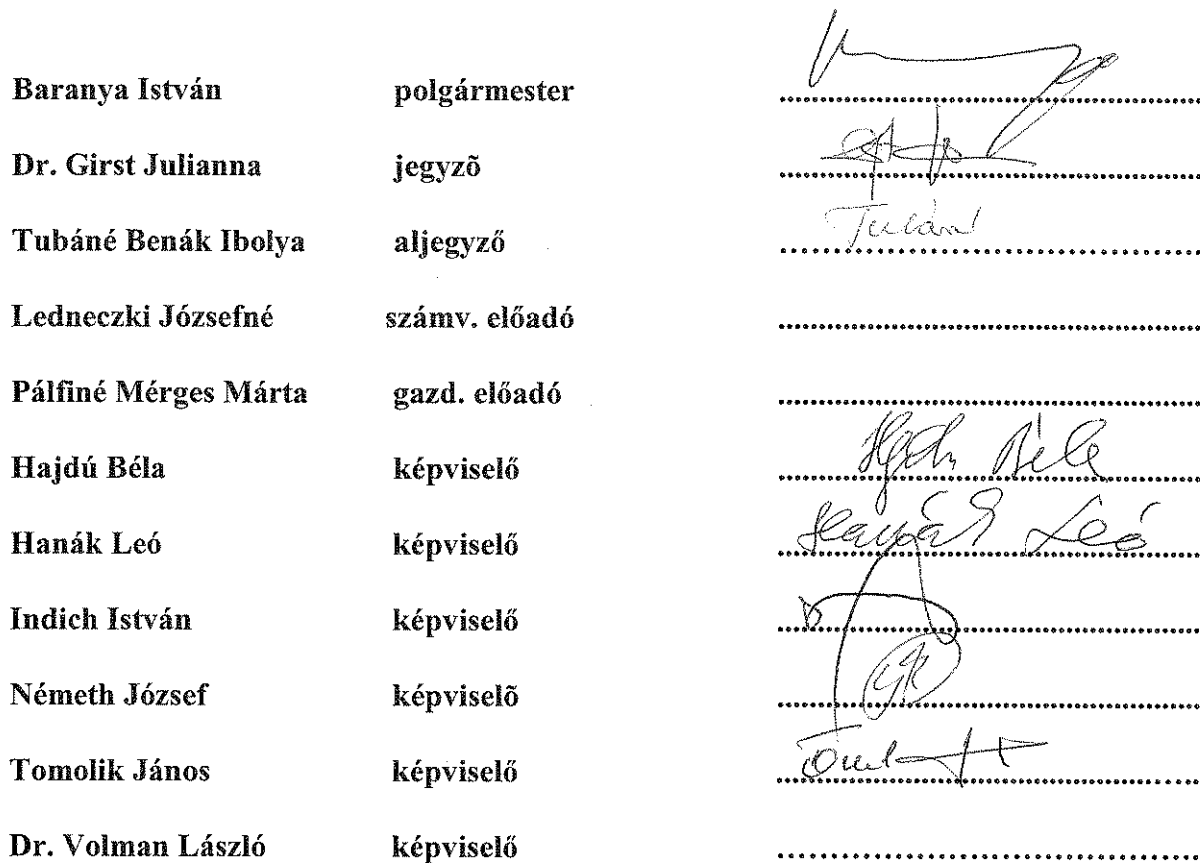 Baranya István polgármester
Dr. Girst Julianna jegyzõ
Tubáné Benák Ibolya aljegyző
Ledneczki Józsefné számv. előadó
Pálfiné Mérges Márta gazd. előadó
Hajdú Béla képviselő Béla
Hanák Leó képviselő Hanyák Leó
Indich István képviselő
Németh József képviselõ
Tomolik János képviselő
Dr. Volman László képviselő